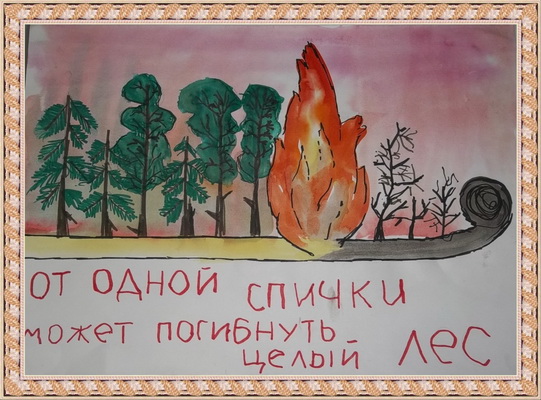 от одной спички
может погибнуть
целый лес